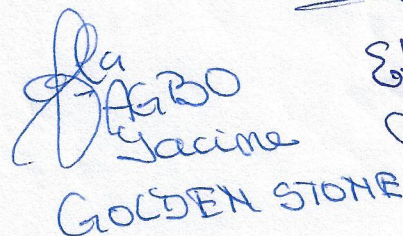 AGBO
Yacine
GOLDEN STONE